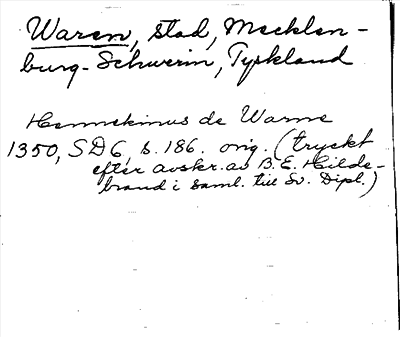 Waren, stad, Mecklen-
burg-Schwerin, Tyskland
Hennekinus de Warne
1350, SD 6, s. 186. orig. (tryckt
efter avskr. av B. E. Hilde-
brand i saml. till Sv. Dipl.)